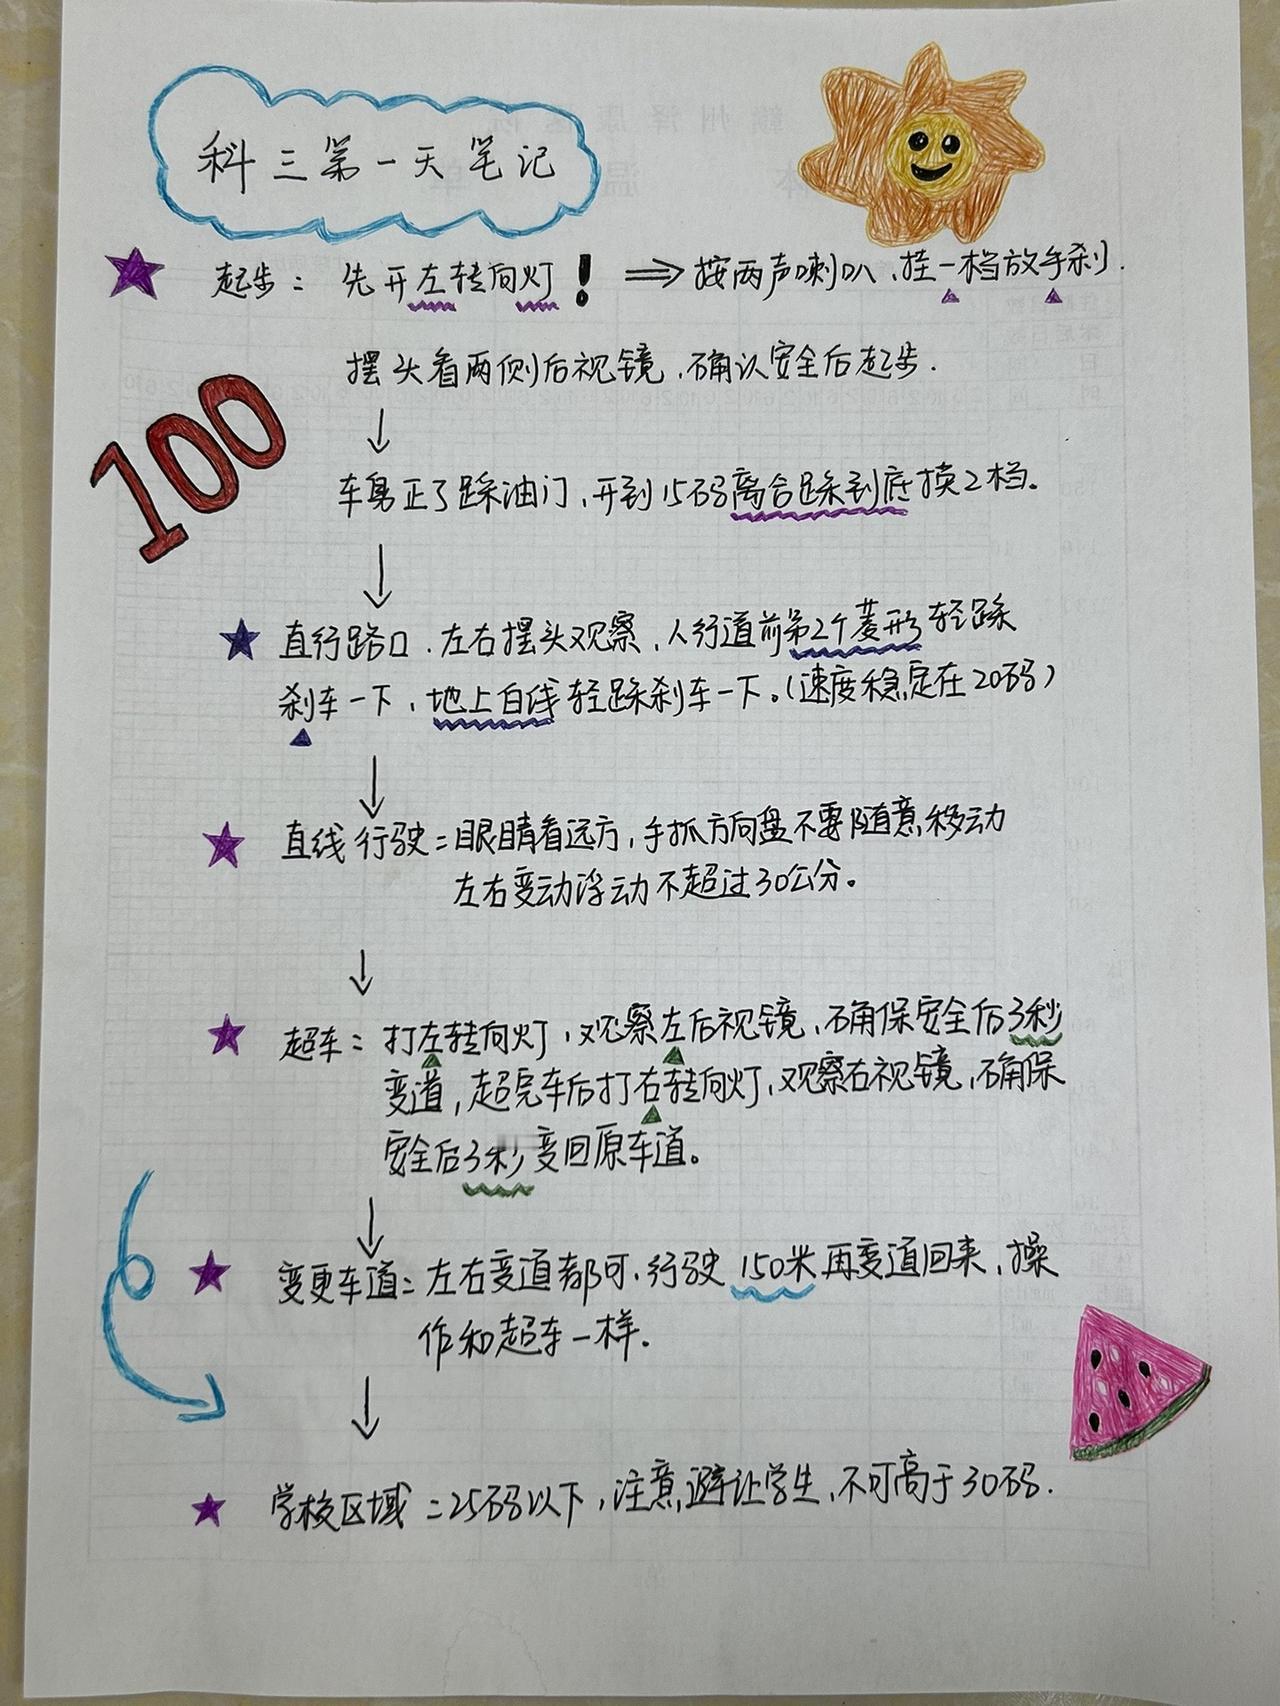 科三第一天笔记
起步：先开左转向灯！⇒按两声喇叭、挂一档放手刹.
摆头看两侧后视镜,确认安全后起步.
100
↓
车身正了踩油门,开到15码离合踩到底换2档。
↓
直行路口.左右摆头观察,人行道前第2个菱形轻踩
刹车一下,地上白线轻踩刹车一下。(速度稳定在20码)
↓
直线行驶：眼睛看远方,手抓方向盘不要随意移动
左右变动浮动不超过30公分。
↓
超车：打左转向灯,观察左后视镜,确保安全后3秒
变道,超完车后打右转向灯,观察右视镜,确保
安全后3秒变回原车道。
↓
变更车道：左右变道都可,行驶150米再变道回来,操
作和超车一样.
↓
学校区域：25码以下,注意避让学生,不可高于30码.